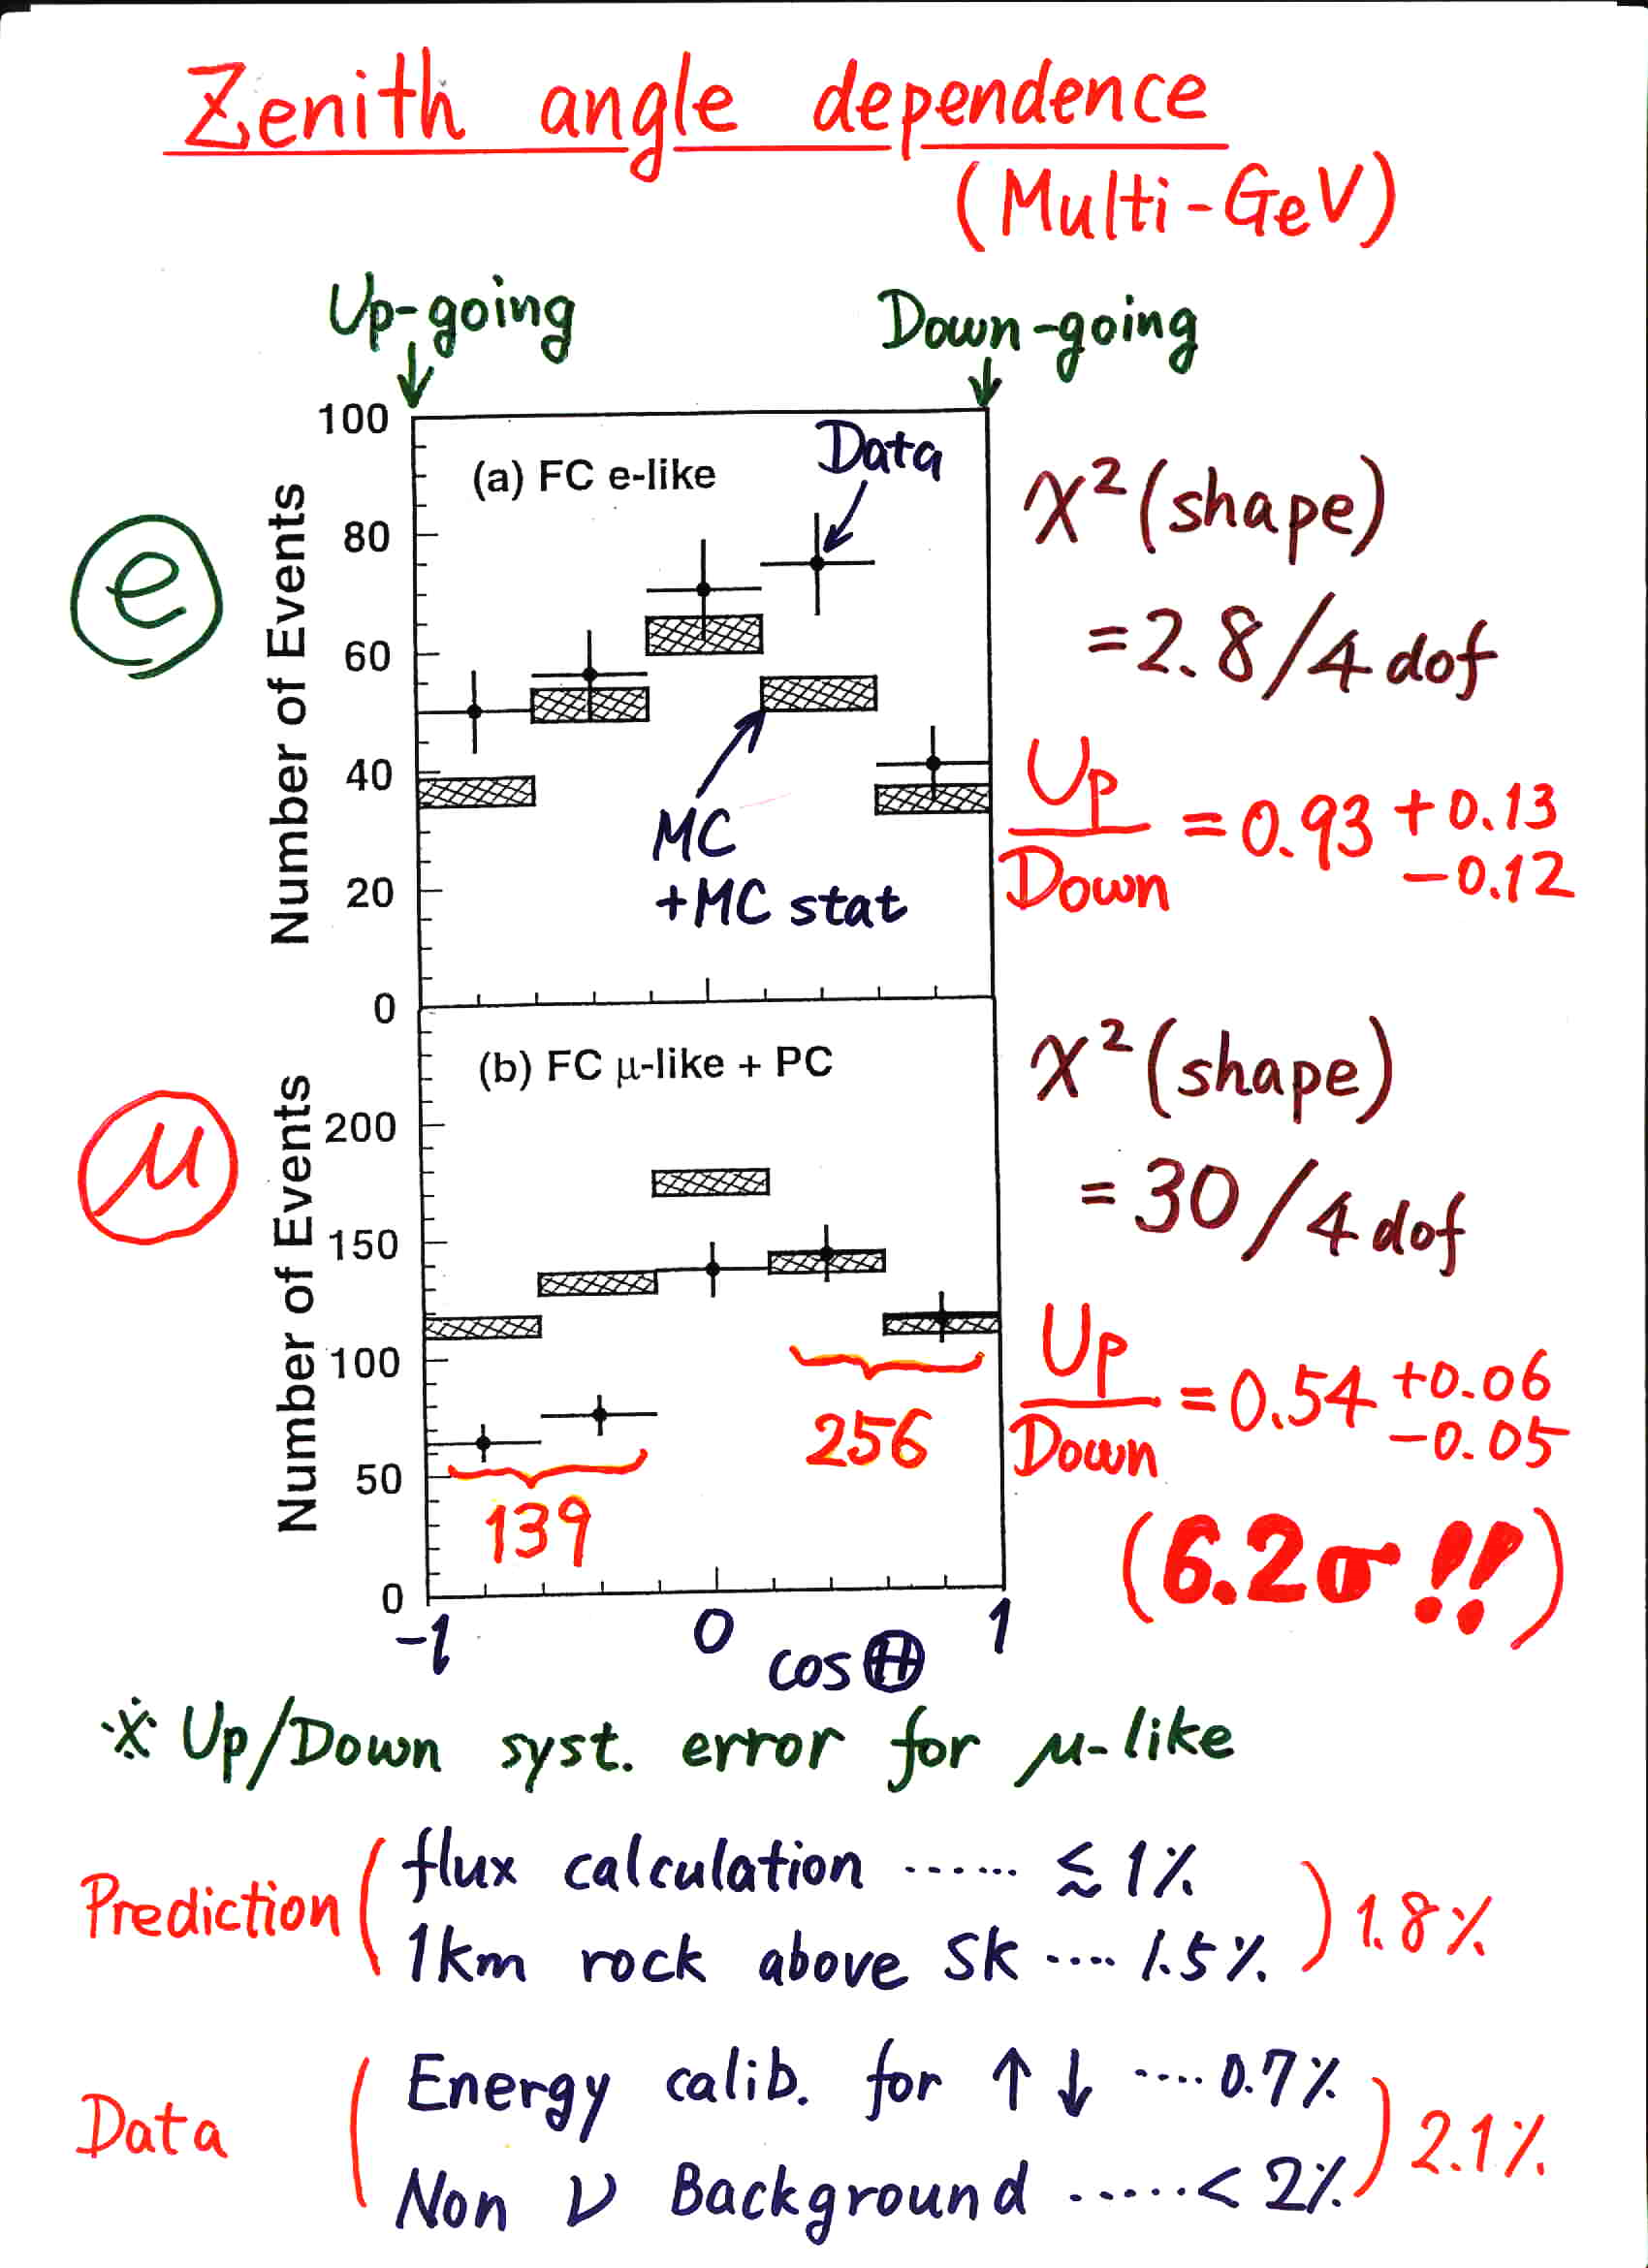 Zenith angle dependence
(Multi-GeV)
Up-going
Down-going
100
80
60
40
20
0
Number of Events
(a) FC e-like
Data
MC
+MC stat
e
χ²(shape)
=2.8/4 dof
Up
Down
=0.93 +0.13
-0.12
200
150
100
50
0
Number of Events
(b) FC μ-like + PC
μ
139
256
χ²(shape)
=30/4 dof
Up
Down
=0.54 +0.06
-0.05
(6.2σ!!)
-1 0 1
cosΘ
※ Up/Down syst. error for μ-like
Prediction
flux calculation ...... ≲ 1%
1km rock above SK .... 1.5%
1.8%
Data
Energy calib. for ↑ ↓ .... 0.7%
Non ν Background ...... < 2%
2.1%